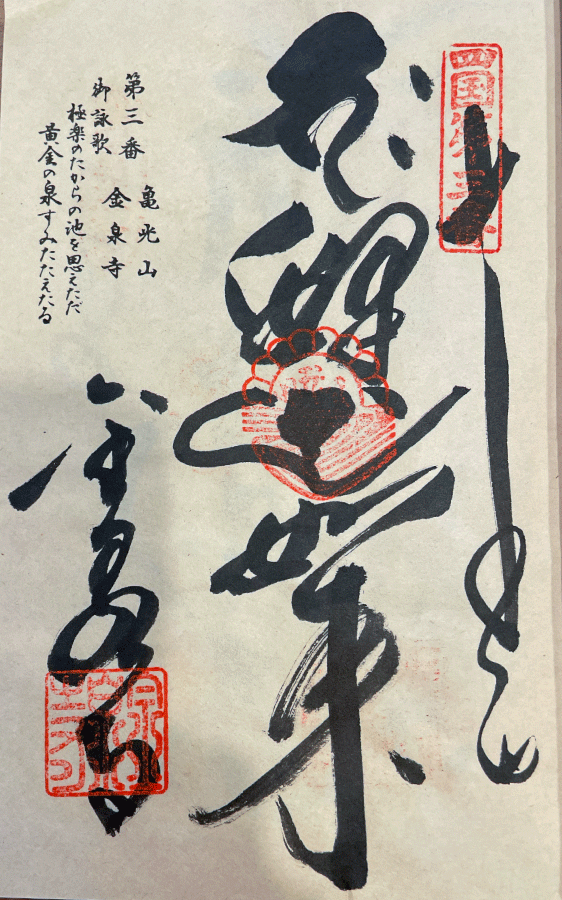 四国第三番
奉拝
釋迦如来
第三番 亀光山
金泉寺
御詠歌
極楽のたからの池を思えただ
黄金の泉すみたたえたる
金泉寺